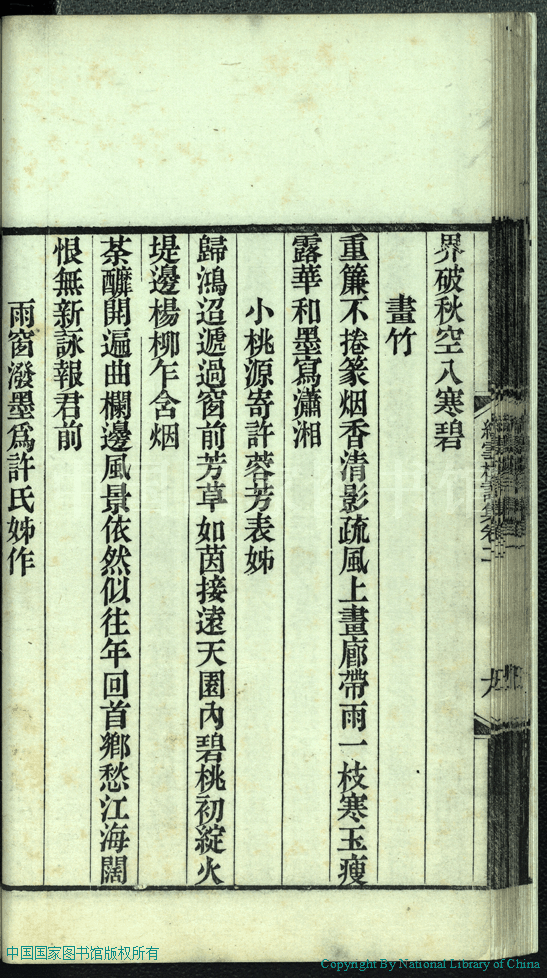 界破秋空入寒碧
畫竹
重簾不捲篆烟香清影疏風上畫廊帶雨一枝寒玉瘦
露華和墨寫瀟湘
小桃源寄許蓉芳表姊
歸鴻迢遞過窗前芳草如茵接遠天園內碧桃初綻火
堤邊楊柳乍含烟
荼䕷開遍曲欄邊風景依然似往年回首鄉愁江海闊
恨無新詠報君前
雨窗潑墨爲許氏姊作
中国国家图书馆版权所有
Copyright By National Library of China